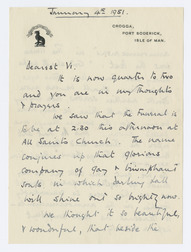 January 4th 1981.
CROGGA,
PORT SODERICK,
ISLE OF MAN.
Dearest Vi.
It is now quarter to two
and you are in my thoughts
& prayers.
We saw that the Funeral is
to be at 2.30 this afternoon at
All Saints Church. The name
conjures up that glorious
company of gay & triumphant
souls in which darling
will shine out so brightly now.
We thought it so beautiful,
& wonderful, that beside the